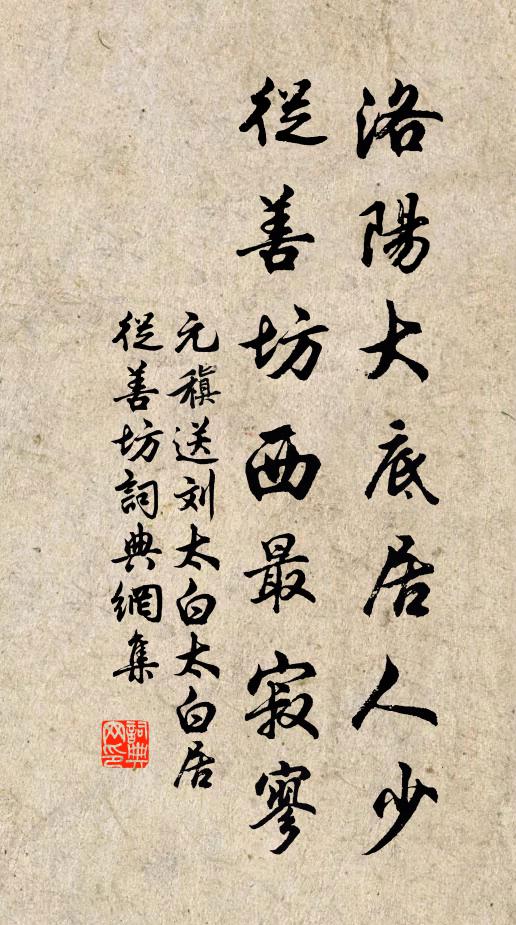 洛陽大底居人少
從善坊西最寂寥
元稹送刘太白太白居
從善坊詞典網集
詞典
网印